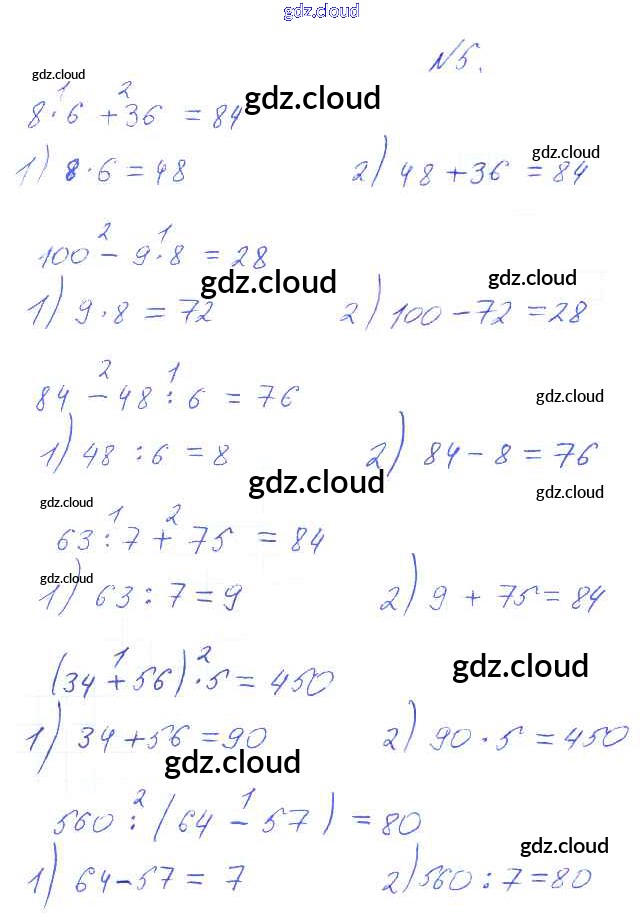 gdz.cloud
№5.
gdz.cloud
1 2
8·6 + 36 = 84 gdz.cloud
1) 8·6 = 48 2) 48 + 36 = 84 gdz.cloud
2 1
100 - 9·8 = 28
gdz.cloud gdz.cloud
1) 9·8 = 72 2) 100 - 72 = 28
2 1
84 - 48 : 6 = 76 gdz.cloud
1) 48 : 6 = 8 2) 84 - 8 = 76
gdz.cloud gdz.cloud
gdz.cloud
1 2
63 : 7 + 75 = 84
gdz.cloud
1) 63 : 7 = 9 2) 9 + 75 = 84
1 2
(34 + 56)·5 = 450 gdz.cloud
1) 34 + 56 = 90 2) 90·5 = 450
gdz.cloud
2 1
560 : (64 - 57) = 80
gdz.cloud
1) 64 - 57 = 7 2) 560 : 7 = 80